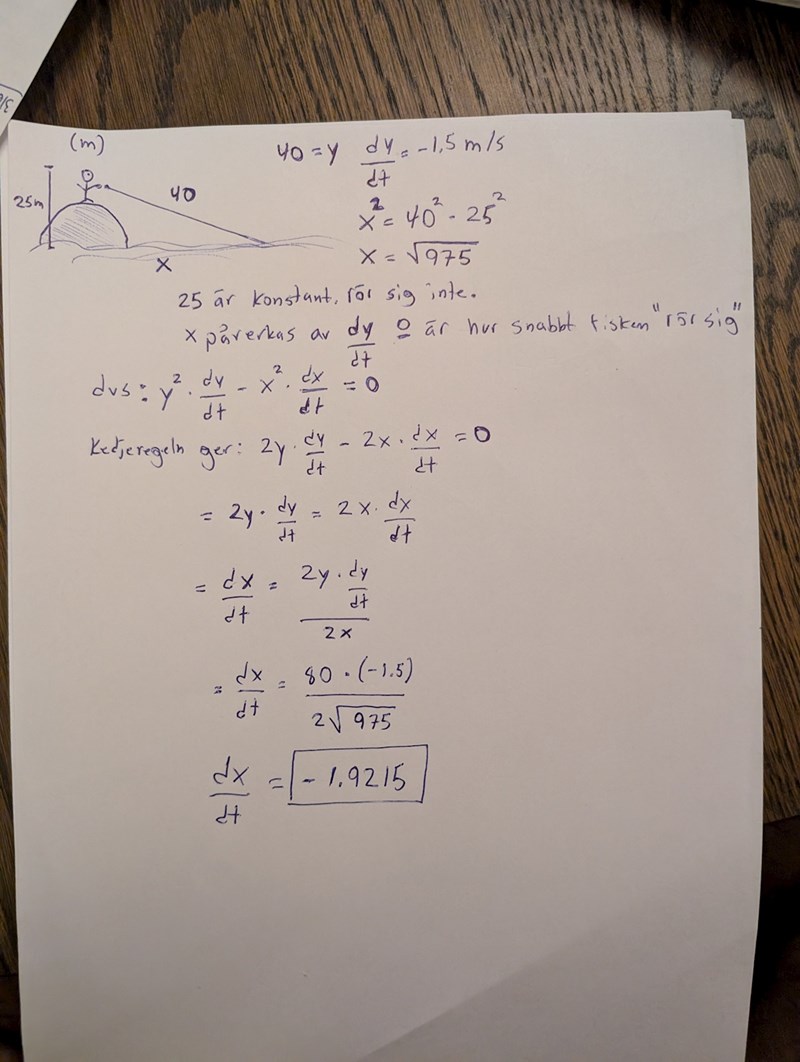 (m)
25m
40
x
40 = y dy/dt = -1,5 m/s
x² = 40² - 25²
x = √975
25 är konstant, rör sig inte.
x påverkas av dy/dt o är hur snabbt fisken "rör sig"
dvs: y² · dy/dt - x² · dx/dt = 0
Kedjeregeln ger: 2y · dy/dt - 2x · dx/dt = 0
= 2y · dy/dt = 2x · dx/dt
= dx/dt = 2y · dy/dt / 2x
= dx/dt = 80 · (-1.5) / 2√975
dx/dt = -1.9215